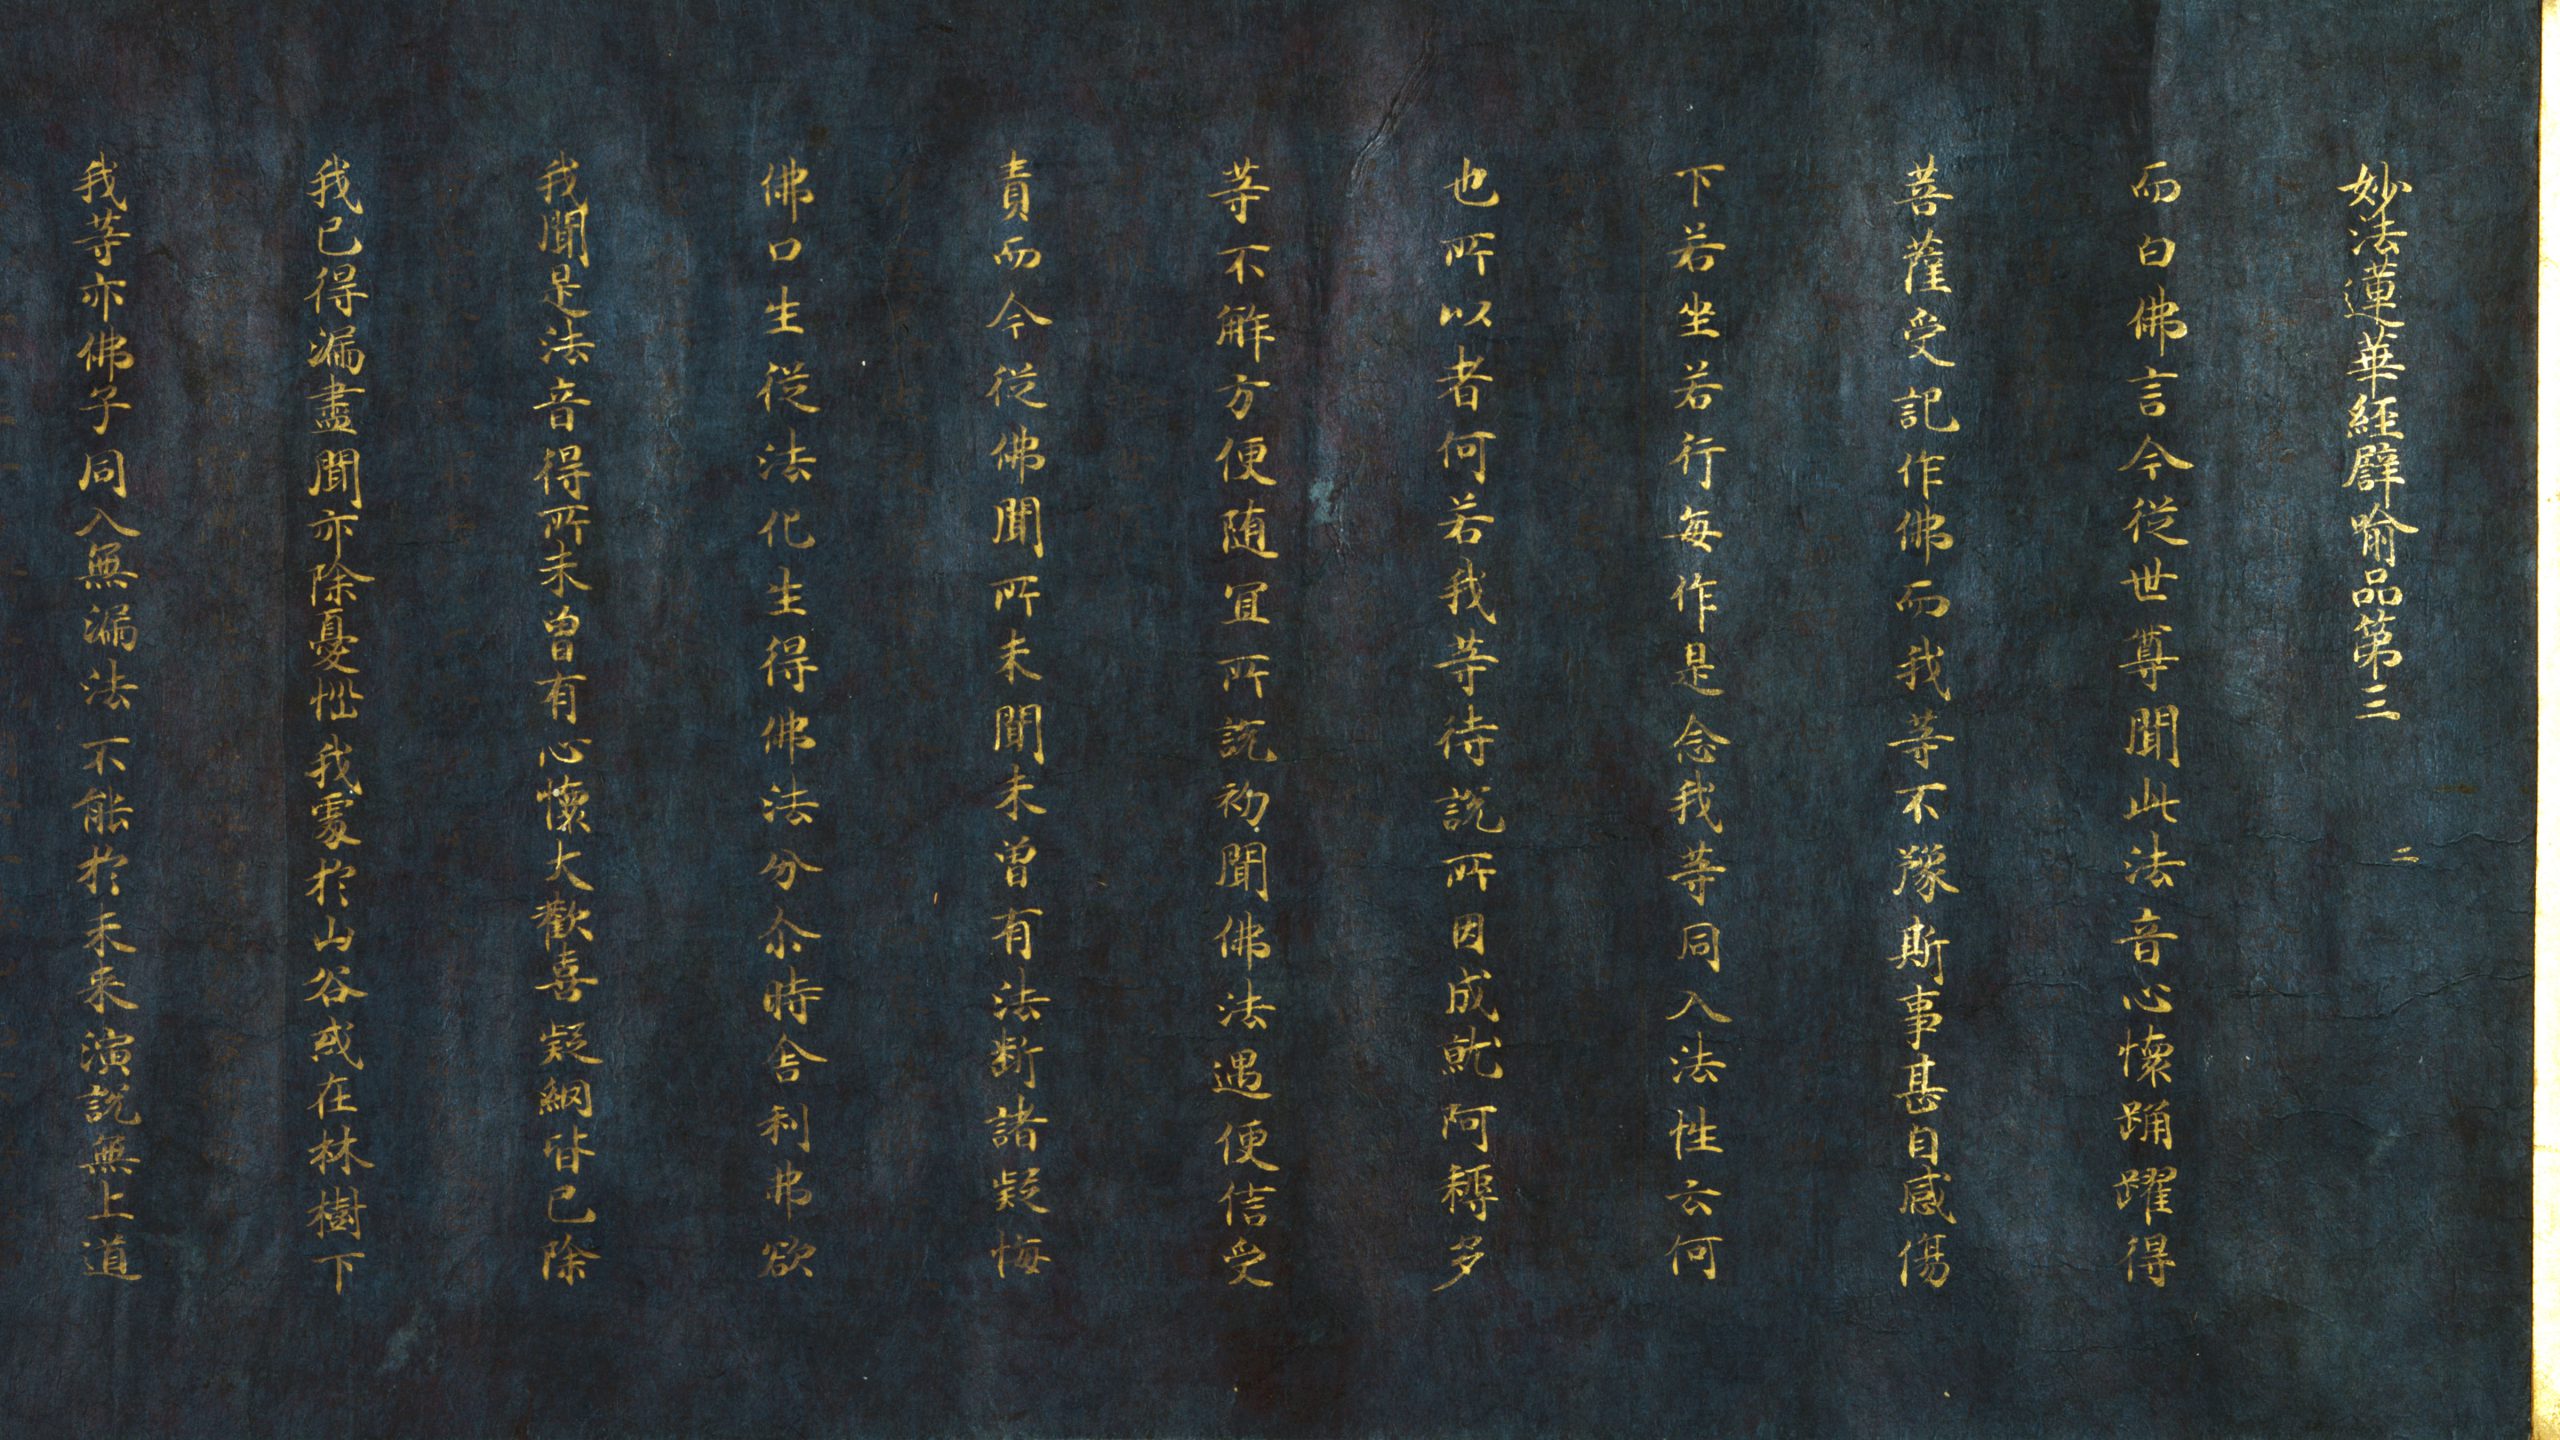 妙法蓮華經譬喻品第三　二
而白佛言今從世尊聞此法音心懷踊躍得
菩薩受記作佛而我等不豫斯事甚自感傷
下若坐若行每作是念我等同入法性云何
也所以者何若我等待說所因成就阿耨多
等不解方便隨宜所說初聞佛法遇便信受
責而今從佛聞所未聞未曾有法斷諸疑悔
佛口生從法化生得佛法分尒時舍利弗欲
我聞是法音得所未曾有心懷大歡喜疑網皆已除
我已得漏盡聞亦除憂惱我處於山谷或在林樹下
我等亦佛子同入無漏法不能於未來演說無上道